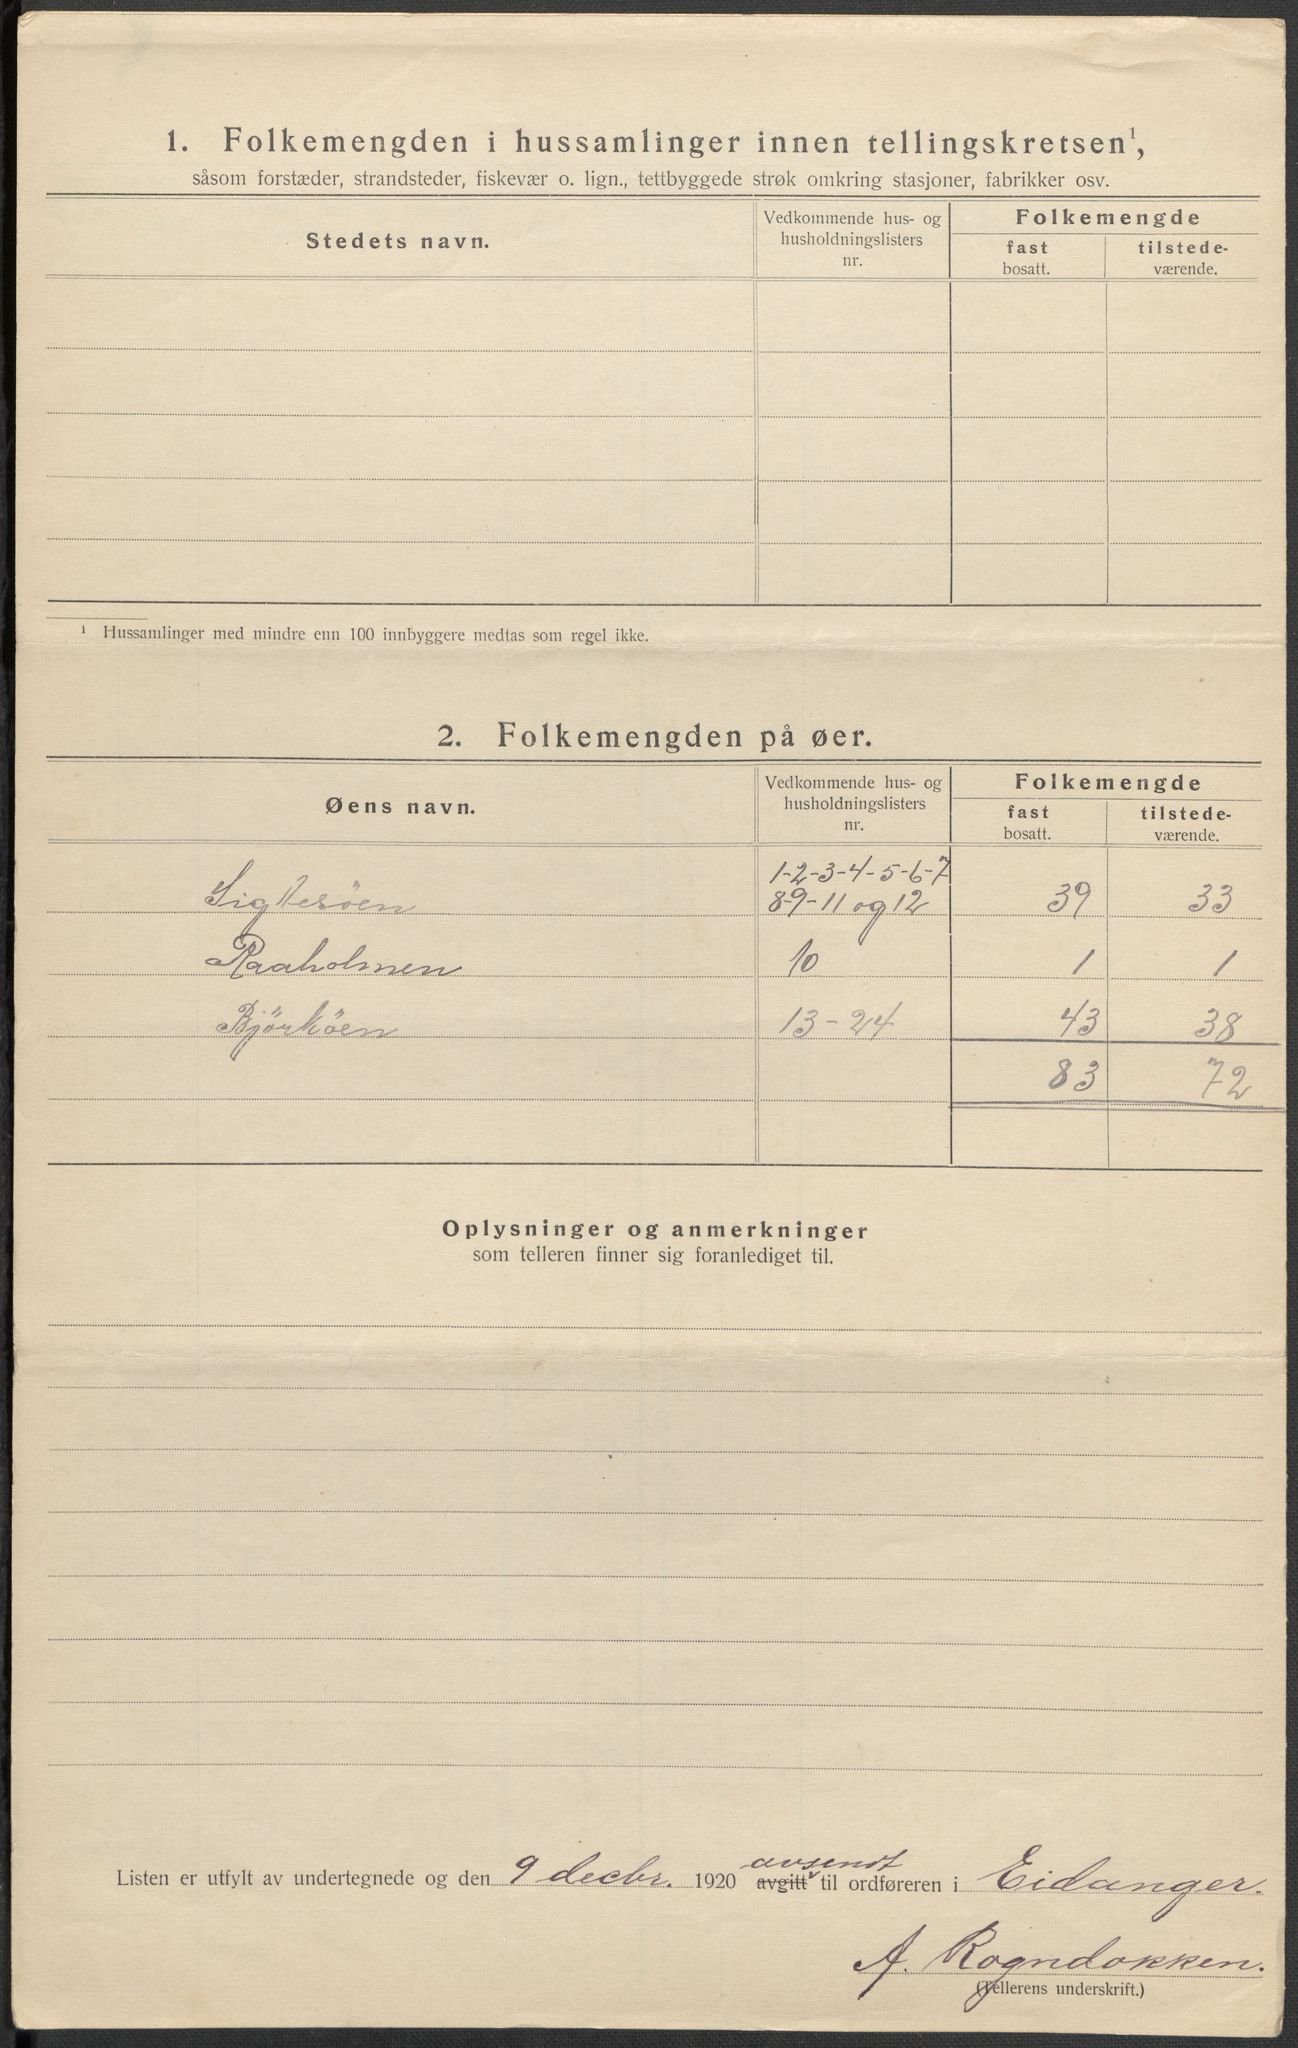 1. Folkemengden i hussamlinger innen tellingskretsen¹,
såsom forstæder, strandsteder, fiskevær o. lign., tettbyggede strøk omkring stasjoner, fabrikker osv.
Stedets navn.
Vedkommende hus- og
husholdningslisters
nr.
Folkemengde
fast
bosatt.
tilstede-
værende.
¹ Hussamlinger med mindre enn 100 innbyggere medtas som regel ikke.
2. Folkemengden på øer.
Øens navn.
Vedkommende hus- og
husholdningslisters
nr.
Folkemengde
fast
bosatt.
tilstede-
værende.
1-2-3-4-5-6-7
Sigtesöen 8-9-11 og 12 39 33
Raaholmen 10 1 1
Björköen 13-24 43 38
83 72
Oplysninger og anmerkninger
som telleren finner sig foranlediget til.
avsendt
Listen er utfylt av undertegnede og den 9 decbr. 1920 avgitt til ordføreren i Eidanger.
A. Rogndokken.
(Tellerens underskrift.)